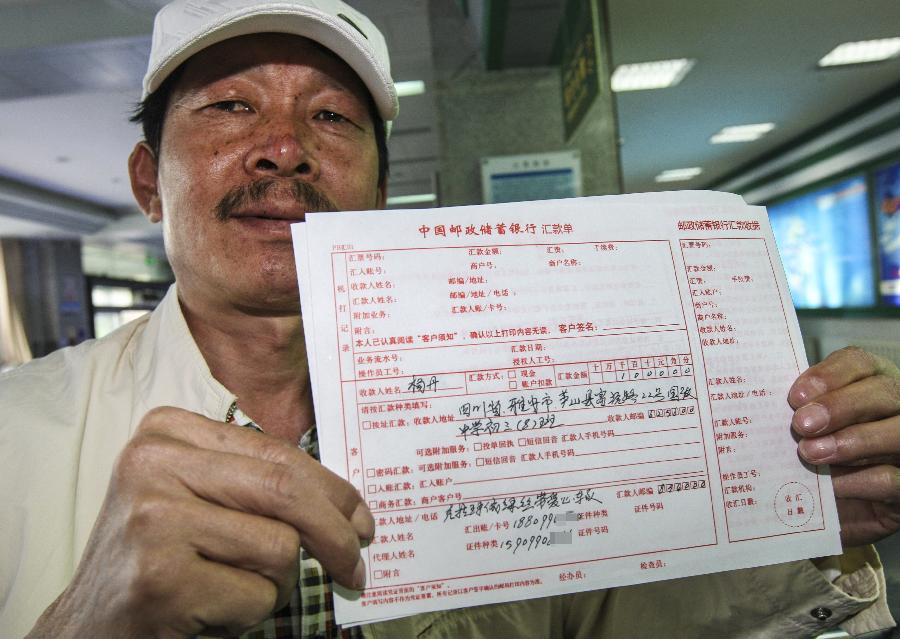 中国邮政储蓄银行 汇款单
邮政储蓄银行汇款收据
机打记录
汇票号码： 汇款金额： 汇费： 手续费：
汇入账号： 商户号： 商户名称：
收款人姓名： 邮编/地址：
汇款人姓名： 邮编/地址/电话：
附加业务： 汇款人账/卡号：
附言：
本人已认真阅读“客户须知”，确认以上打印内容无误。客户签名：
业务流水号： 汇款日期：
操作员工号： 授权人工号：
客户
收款人姓名 杨丹 汇款方式： □现金 □账户扣款 汇款金额 十万千百十元角分 100000
请按汇款种类填写： 四川省 雅安市 芦山县
□按址汇款：收款人地址 中学初三(8)班 收款人邮编
可选附加服务：□投单回执 □短信回音 汇款人手机号码
□密码汇款：可选附加服务：□短信回音 汇款人手机号码
□入账汇款：汇入账户
□商务汇款：商户客户号
汇款人地址/电话 克拉玛依绿丝带爱心车队 汇款人邮编
汇款人姓名 汇出账/卡号 188099 证件种类 证件号码
代理人姓名 证件种类 1590990 证件号码
□附言
经办员： 检查员：
汇票号码：
汇款金额：
汇费： 手续费：
汇入账户：
商户号：
商户名称：
收款人姓名：
收款人地址：
汇款人姓名：
汇款人地址/电话：
汇款人账号：
附加服务：
附言：
操作员工号：
汇款机构：
收汇日期：
收汇
日戳